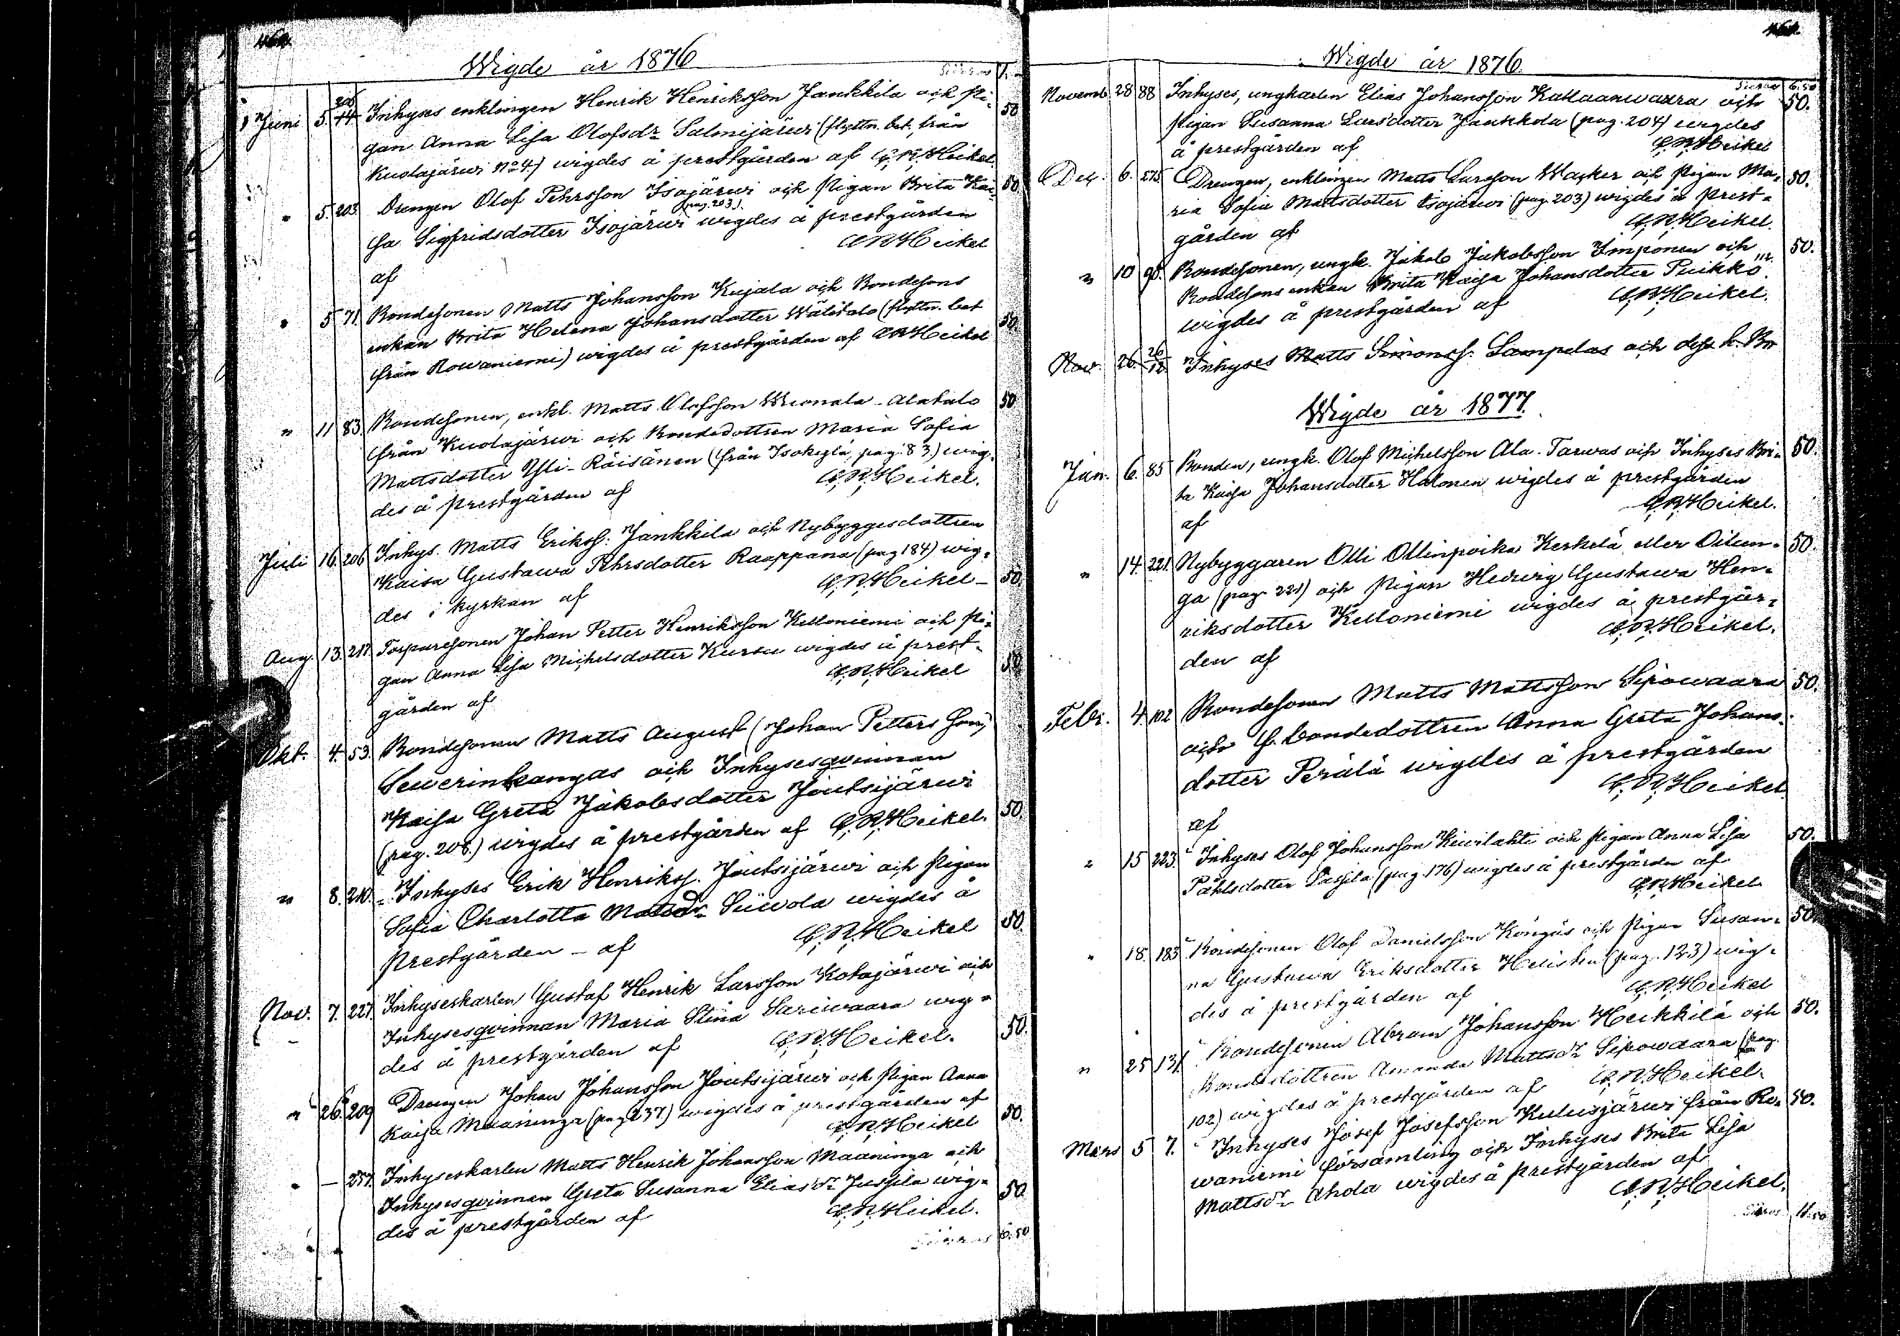 Wigde år 1876
Siirros 1.
Juni 5. 206 44 Inhyses enklingen Henrik Henriksson Jankkila och Pi- 50
gan Anna Lisa Olofsdr Salmijärwi (flyttn. bet. från
Kuolajärwi No 4.) wigdes å prestgården af C.R.Heikel
" 5. 203 Drengen Olof Pehrsson Isojärwi och Pigan Brita Kai- 50.
(pag. 203).
sa Sigfridsdotter Isojärwi wigdes å prestgården
af C.R.Heikel
" 5 71. Bondesonen Matts Johansson Kujala och Bondesons
enkan Brita Helena Johansdotter Wälitalo (flyttn. bet
från Rowaniemi) wigdes å prestgården af C.R.Heikel 50.
" 11 83. Bondesonen, enkl. Matts Olofsson Alatalo 50
från Kuolajärwi och Bondedottren Maria Sofia
Mattsdotter Yli-Räisänen (från Isokylä, pag. 83.) wig-
des å prestgården af C.R.Heikel.
Juli 16. 206 Inhys. Matts Erikss. Jankkila och Nybyggesdottren
Kaisa Gustawa Pehrsdotter Raappana (pag 184) wig-
des i kyrkan af C.R.Heikel - 50.
Aug. 13. 217. Torparesonen Johan Petter Henriksson Kelloniemi och Pi-
gan Anna Lisa Michelsdotter Kursu wigdes å prest-
gården af C.R.Heikel 50.
Okt. 4. 53. Bondesonen Matts August (Johan Petters son)
Sewerinkangas och Inhysesqwinnan
Kaisa Greta Jakobsdotter Joutsijärwi
(pag. 208.) wigdes å prestgården af C.R.Heikel. 50.
" 8. 210. Inhyses Erik Henrikss. Joutsijärwi och Pigan
Sofia Charlotta Mattsdr Siiwola wigdes å
prestgården - af C.R.Heikel 50.
Nov. 7. 227. Inhyseskarlen Gustaf Henrik Larsson Kotajärwi och
Inhysesqwinnan Maria Stina Sariwaara wig-
des å prestgården af C.R.Heikel. 50.
" 26. 209 Drengen Johan Johansson Joutsijärwi och Pigan Anna
Kaisa Maaninga (pag 237) wigdes å prestgården af
C.R.Heikel 50.
" — 257. Inhyseskarlen Matts Henrik Johansson Maaninga och
Inhysesqwinnan Greta Susanna Eliasdr Jussila wig-
des å prestgården af C.R.Heikel. 50.
Siirros 6:50
Wigde år 1876.
Siirros 6:50
Novemb. 28 88 Inhyses, ungkarlen Elias Johansson Kallaanwaara och 50.
Pigan Susanna Larsdotter Jankkola (pag. 204) wigdes
å prestgården af C.R.Heikel
Dec. 6. 275. Drengen, enklingen Matts Larsson Wacker och Pigan Ma- 50.
ria Sofia Mattsdotter Isojärwi (pag. 203) wigdes å prest-
gården af C.R.Heikel.
" 10 98. Bondesonen, ungk. Jakob Jakobsson Imponen och 50.
Bondesons enkan Brita Kaisa Johansdotter Puikko
wigdes å prestgården af C.R.Heikel.
Nov. 26. 26/12 Inhyses Matts Simonss. Lampelas och dess h. Br
Wigde år 1877.
Jan. 6. 85 Bonden, ungk. Olof Michelsson Ala-Tarwas och Inhyses Bri- 50.
ta Kaisa Johansdotter Halonen wigdes å prestgården
af C.R.Heikel.
" 14. 221. Nybyggaren Olli Ollinpoika Kerkelä eller Oilun- 50.
ga (pag. 221) och Pigan Hedwig Gustawa Hen-
riksdotter Kelloniemi wigdes å prestgår-
den af C.R.Heikel.
Febr. 4. 102 Bondesonen Matts Mattsson Sipowaara 50.
och f. bondedottren Anna Greta Johans-
dotter Perälä wigdes å prestgården
af C.R.Heikel.
" 15 223. Inhyses Olof Johansson Kiwilahti och Pigan Anna Lisa 50.
Påhlsdotter Passila (pag. 176) wigdes å prestgården af
C.R.Heikel
" 18. 183 Bondesonen Olof Danielsson Köngäs och Pigan Susan- 50.
na Gustawa Eriksdotter (pag. 123) wig-
des å prestgården af C.R.Heikel
" 25 131. Bondesonen Abram Johansson Heikkilä och 50.
Bondedottren Amanda Mattsdr Sipowaara (pag.
102) wigdes å prestgården af C.R.Heikel.
Mars 5 7. Inhyses Josef Josefsson Kulusjärwi från Ro- 50.
waniemi församling och Inhyses Brita Lisa
Mattsdr Ahola wigdes å prestgården af
C.R.Heikel.
Siirros 11:50